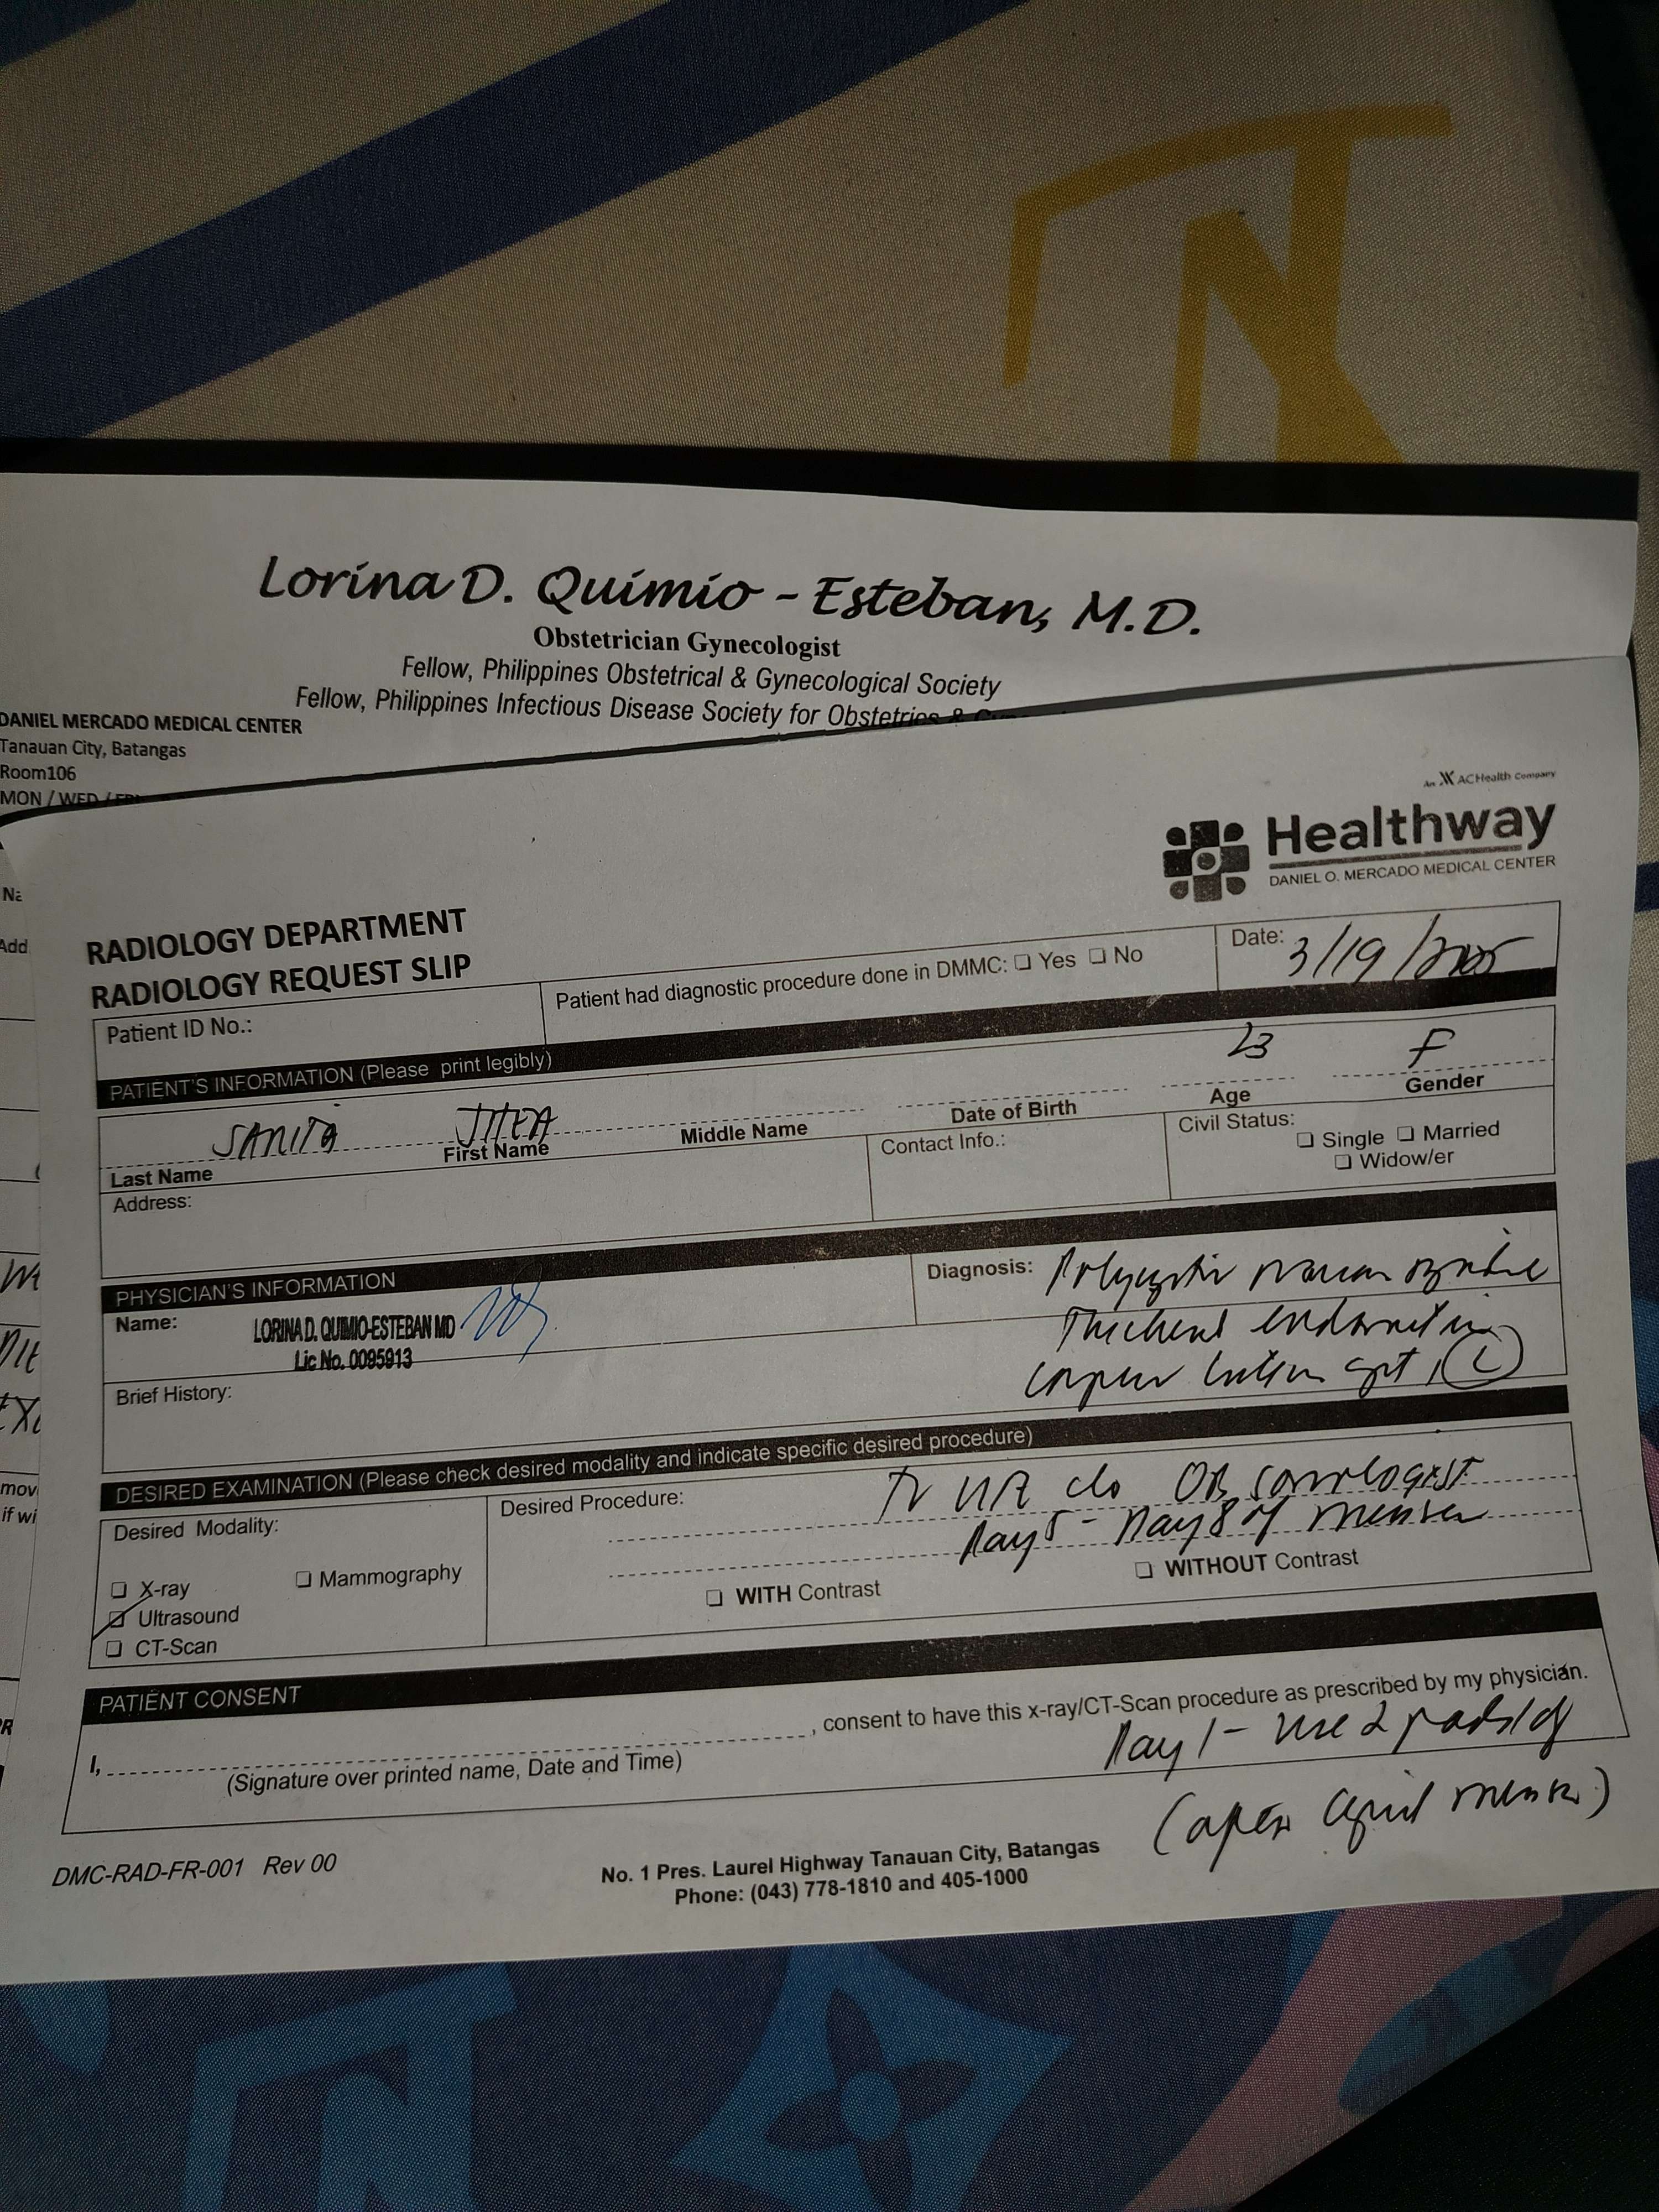 Lorina D. Quimio - Esteban, M.D.
Obstetrician Gynecologist
Fellow, Philippines Obstetrical & Gynecological Society
Fellow, Philippines Infectious Disease Society for Obstetrics &
DANIEL MERCADO MEDICAL CENTER
Tanauan City, Batangas
Room106
MON / WED / FRI
An ACHealth Company
Healthway
DANIEL O. MERCADO MEDICAL CENTER
Na
Add
RADIOLOGY DEPARTMENT
RADIOLOGY REQUEST SLIP
Patient ID No.:
Patient had diagnostic procedure done in DMMC: ❑ Yes ❑ No
Date: 3/19/2025
PATIENT'S INFORMATION (Please print legibly)
23 F
Last Name First Name Middle Name Date of Birth Age Gender
Address:
Contact Info.:
Civil Status:
❑ Single ❑ Married
❑ Widow/er
PHYSICIAN'S INFORMATION
Name: LORINA D. QUIMIO-ESTEBAN MD
Lic No. 0095913
Diagnosis: Polycystic ovarian syndrome
Thickened endometrium
corpus luteum cyst, (L)
Brief History:
DESIRED EXAMINATION (Please check desired modality and indicate specific desired procedure)
Desired Modality:
❑ X-ray ❑ Mammography
☑ Ultrasound
❑ CT-Scan
Desired Procedure: OB sonologist
Day 5 - Day 8 of menses
❑ WITH Contrast ❑ WITHOUT Contrast
mov
if wi
PATIENT CONSENT
I, , consent to have this x-ray/CT-Scan procedure as prescribed by my physician.
(Signature over printed name, Date and Time)
Day 1 - use 2 pads/day
(after April menses)
DMC-RAD-FR-001 Rev 00
No. 1 Pres. Laurel Highway Tanauan City, Batangas
Phone: (043) 778-1810 and 405-1000